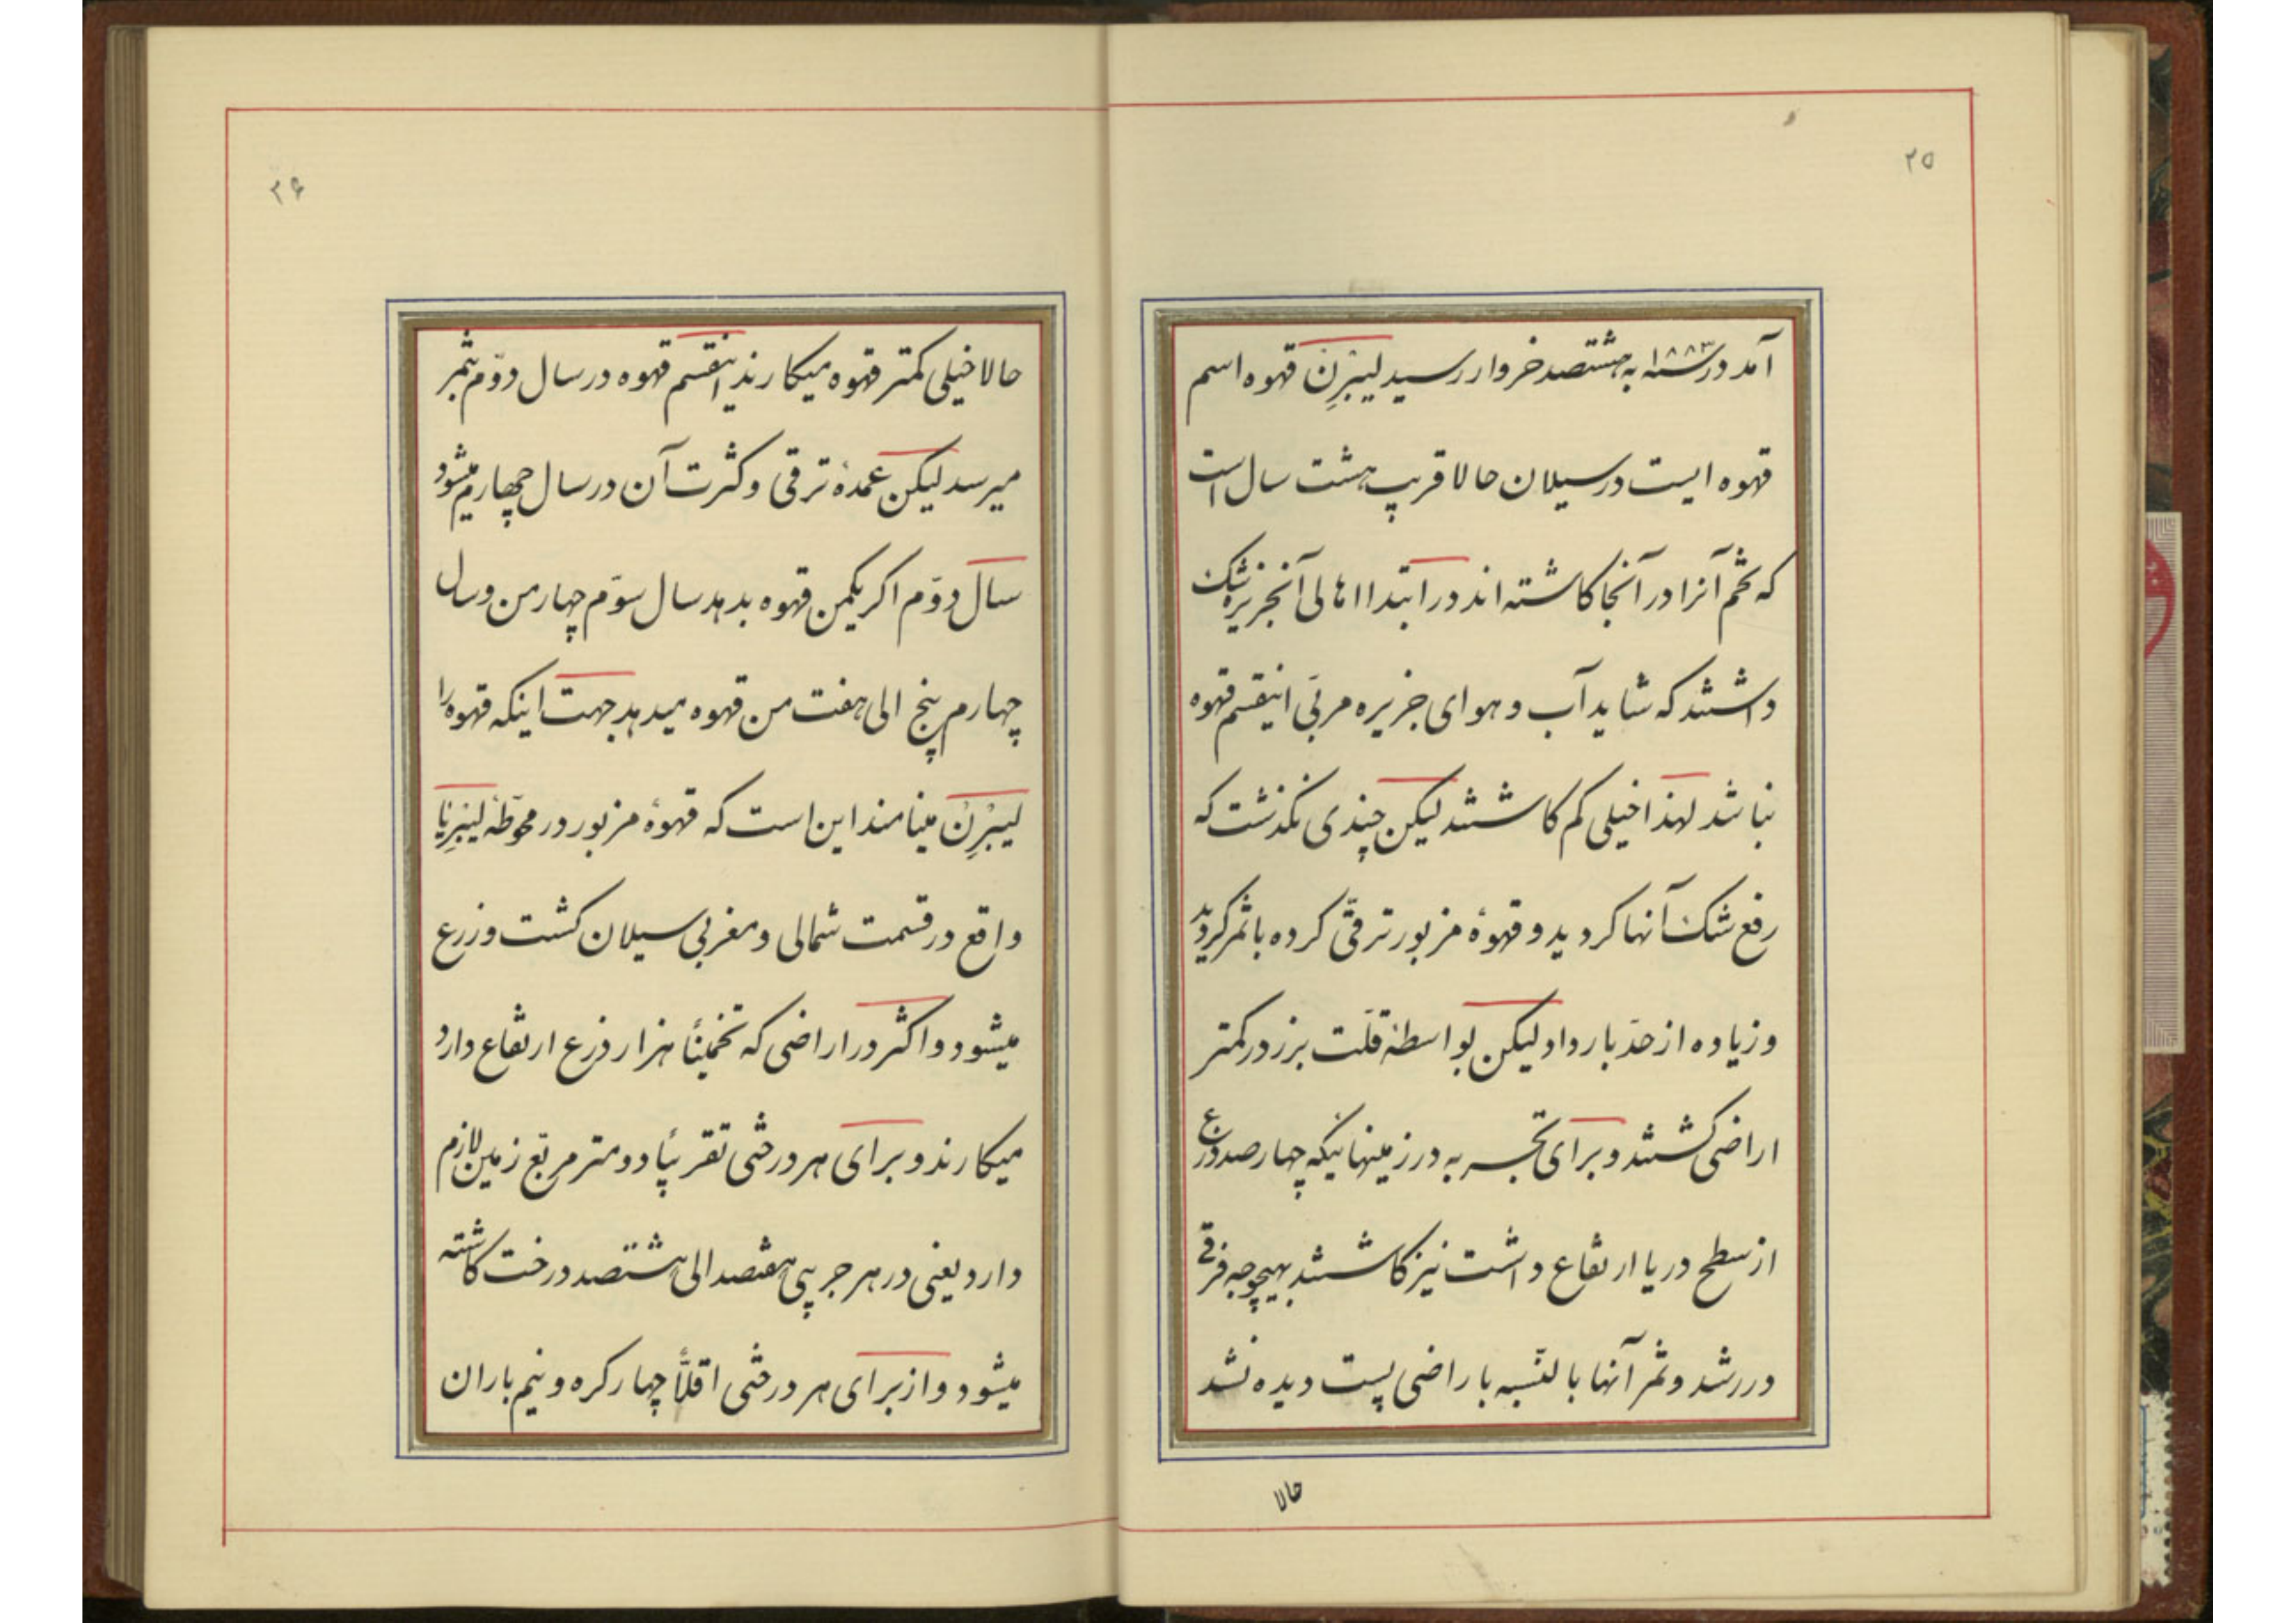 ۲۵
آمد در سنه ۱۸۸۳ به هشتصد خروار رسید لیبْرِنْ قهوه اسم
قهوه ایست در سیلان حالا قریب هشت سال است
که تخم آنرا در آنجا کاشته اند در ابتدا اهالی آنجزیره شک
داشتند که شاید آب و هوای جزیره مربّی اینقسم قهوه
نباشد لهذا خیلی کم کاشتند لیکن چندی نکذشت که
رفع شک آنها کردید و قهوهٔ مزبور ترقّی کرده با ثمر کردید
و زیاده از حدّ بار داد لیکن بواسطهٔ قلّت بزر در کمتر
اراضی کشتند و برای تجربه در زمینهائیکه چهارصد ذرع
از سطح دریا ارتفاع داشت نیز کاشتند بهیچوجه فرقی
در رشد و ثمر آنها بالنّسبه باراضی پست دیده نشد
حالا
۲۶
حالا خیلی کمتر قهوه میکارند اینقسم قهوه در سال دوّم بثمر
میرسد لیکن عمدهٔ ترقی و کثرت آن در سال چهارم میشود
سال دوّم اکر یکمن قهوه بدهد سال سوّم چهار من و سال
چهارم پنج الی هفت من قهوه میدهد جهت اینکه قهوه را
لیبْرِنْ مینامند این است که قهوهٔ مزبور در محوّطهٔ لیبْرِیا
واقع در قسمت شمالی و مغربی سیلان کشت و زرع
میشود و اکثر در اراضی که تخمیناً هزار ذرع ارتفاع دارد
میکارند و برای هر درختی تقریباً دو متر مربّع زمین لازم
دارد یعنی در هر جریبی هفتصد الی هشتصد درخت کاشته
میشود و از برای هر درختی اقلّاً چهار کره و نیم باران